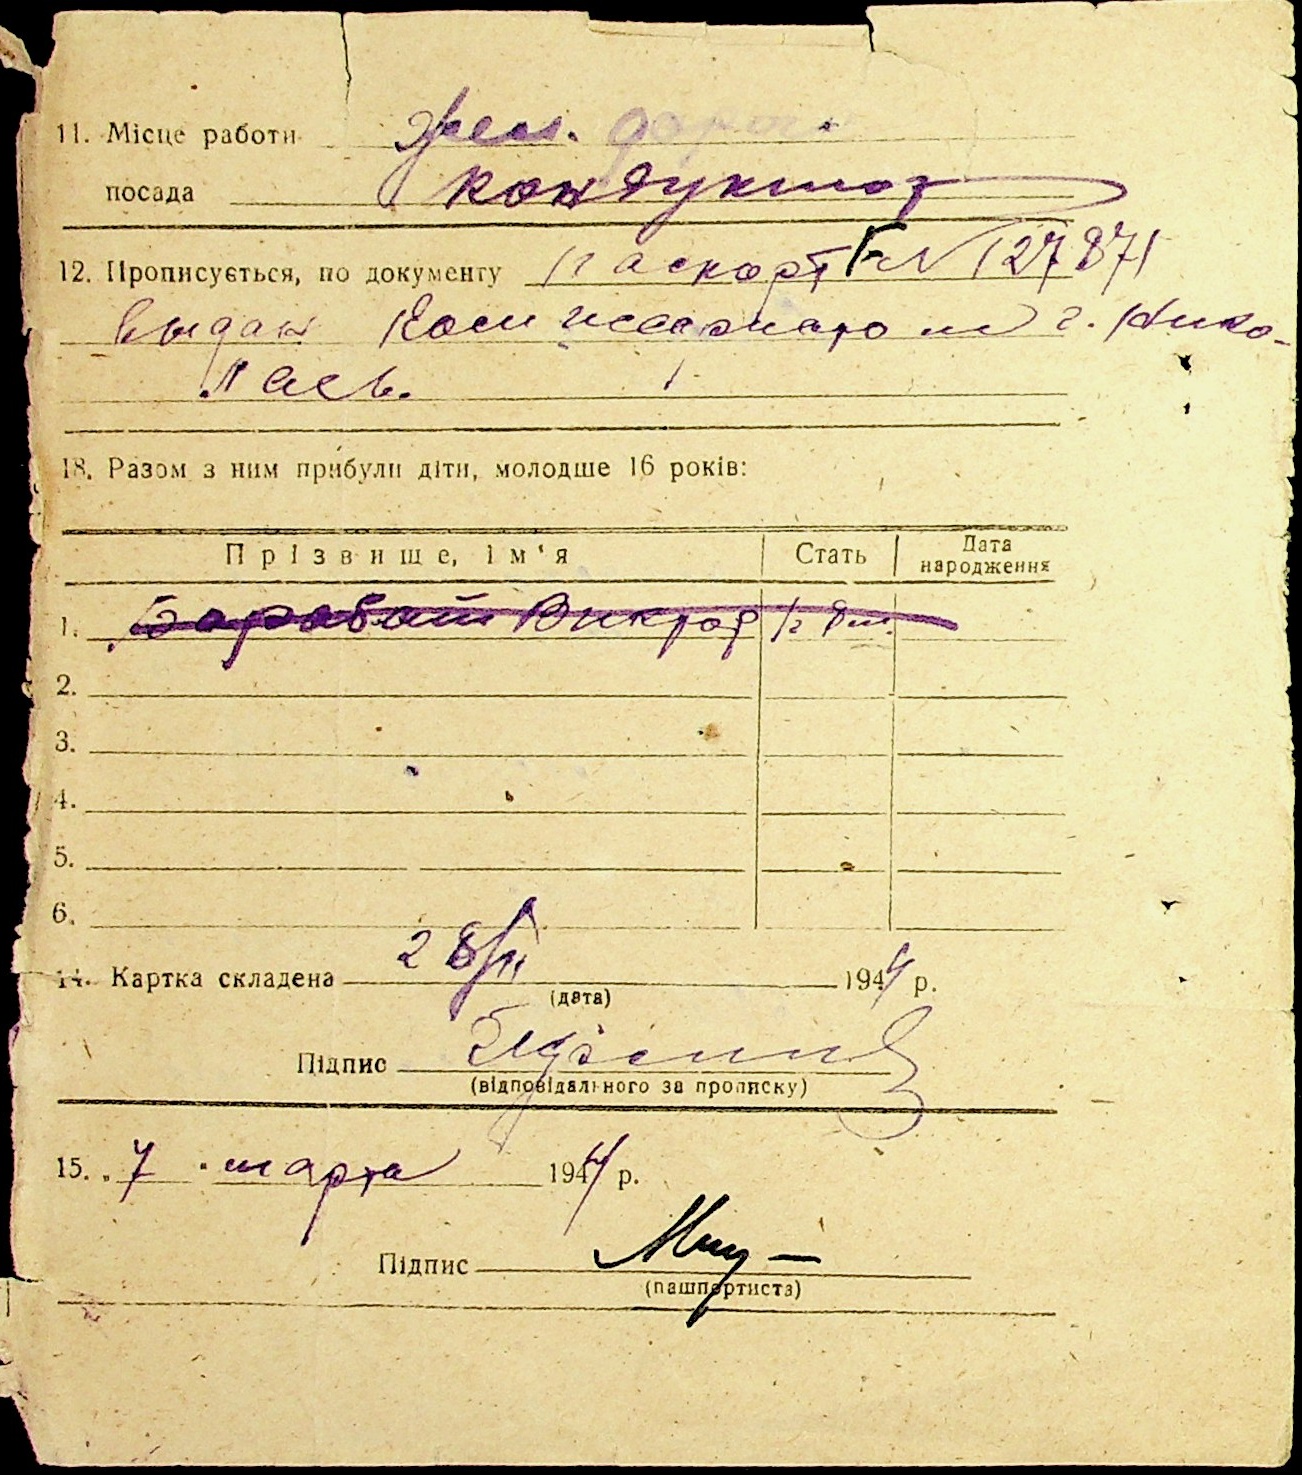 11. Місце работи жел. дорога
посада кондуктор
12. Прописується, по документу паспорт № 127871
выдан Комиссариатом г. Нико-
лаев.
18. Разом з ним прибули діти, молодше 16 років:
Прізвище, ім'я Стать Дата народження
1. Виктор
2.
3.
4.
5.
6.
14. Картка складена 28/II 1944 р.
(дата)
Підпис
(відповідального за прописку)
15. „7" марта 1944 р.
Підпис
(пашпортиста)